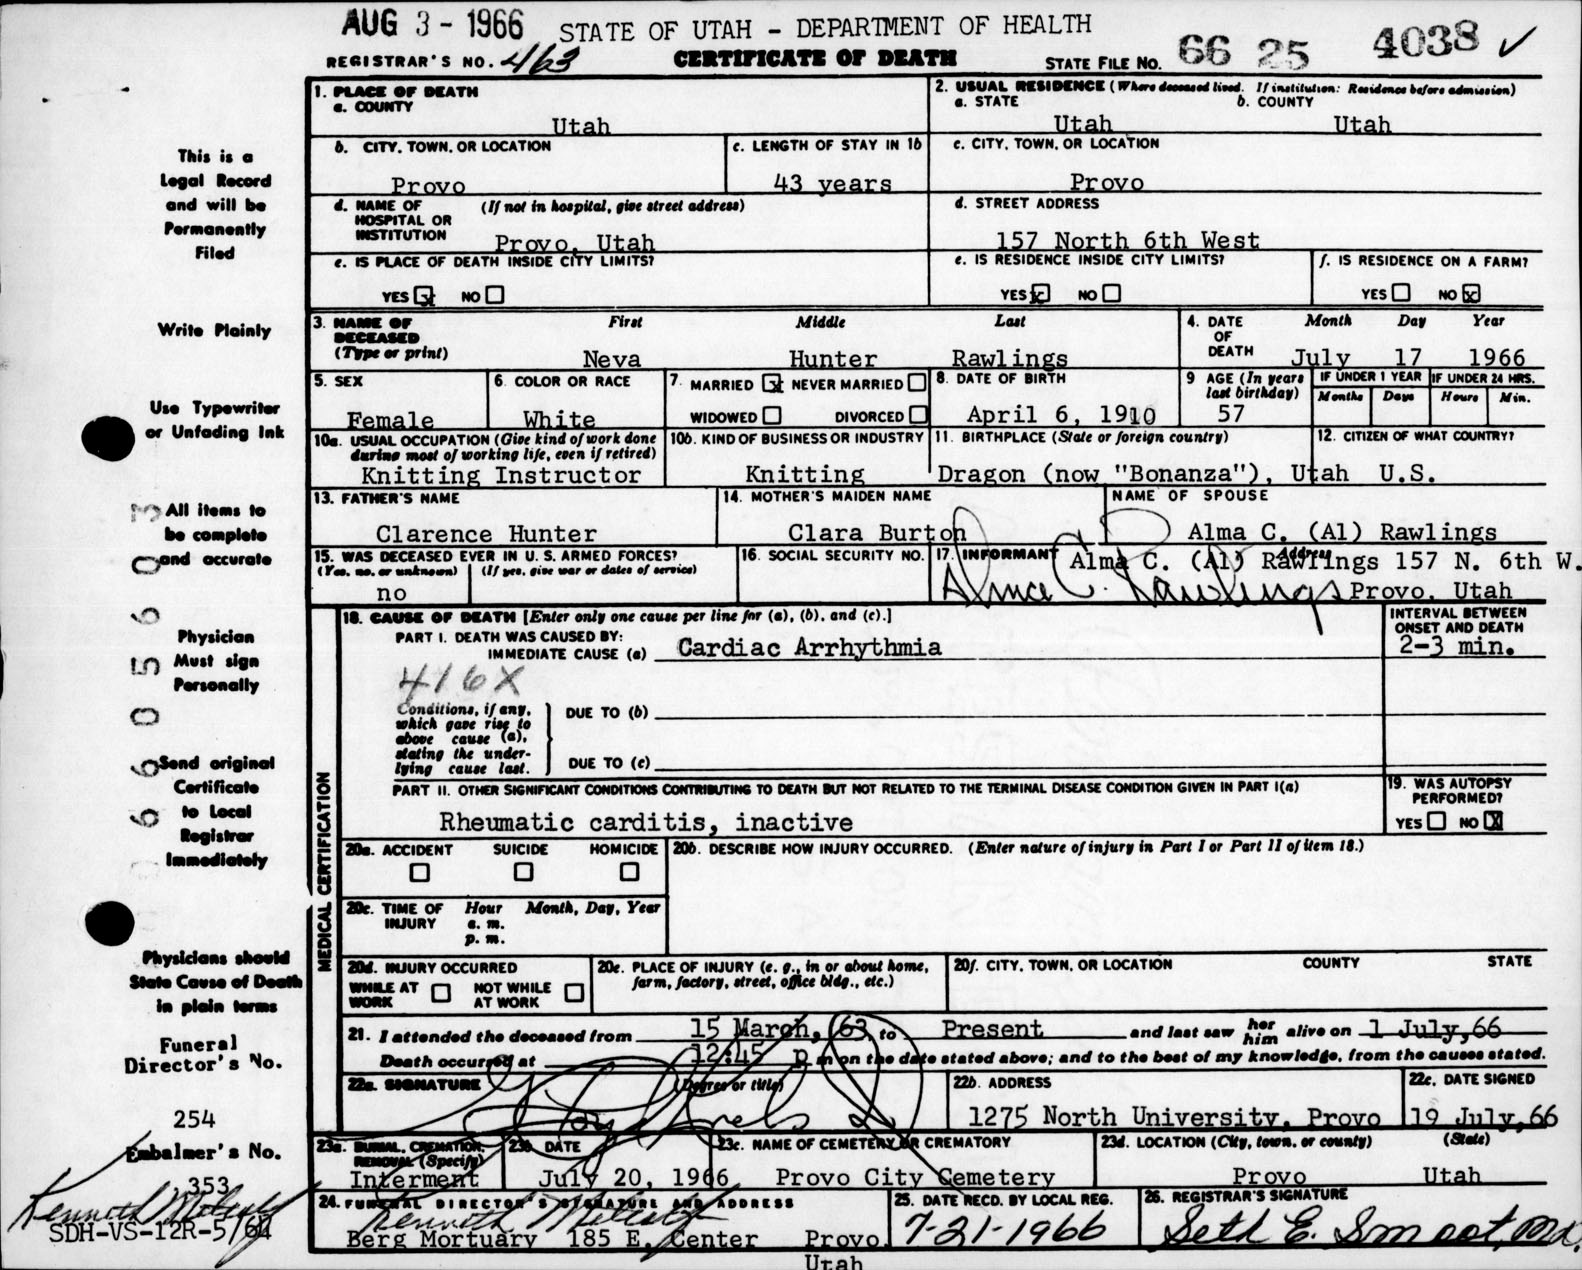 AUG 3 - 1966 STATE OF UTAH - DEPARTMENT OF HEALTH
REGISTRAR'S NO. 463 CERTIFICATE OF DEATH STATE FILE NO. 66 25 4038 ✓
This is a
Legal Record
and will be
Permanently
Filed
Write Plainly
Use Typewriter
or Unfading Ink
All items to
be complete
and accurate
Physician
Must sign
Personally
Send original
Certificate
to Local
Registrar
Immediately
Physicians should
State Cause of Death
in plain terms
Funeral
Director's No.
254
Embalmer's No.
353
Kenneth Metcalf
SDH-VS-12R-5/64
1. PLACE OF DEATH
a. COUNTY
Utah
2. USUAL RESIDENCE (Where deceased lived. If institution: Residence before admission)
a. STATE b. COUNTY
Utah Utah
b. CITY, TOWN, OR LOCATION
Provo
c. LENGTH OF STAY IN 1b
43 years
c. CITY, TOWN, OR LOCATION
Provo
d. NAME OF (If not in hospital, give street address)
HOSPITAL OR
INSTITUTION Provo, Utah
d. STREET ADDRESS
157 North 6th West
e. IS PLACE OF DEATH INSIDE CITY LIMITS?
YES x NO
e. IS RESIDENCE INSIDE CITY LIMITS?
YES x NO
f. IS RESIDENCE ON A FARM?
YES NO x
3. NAME OF First Middle Last
DECEASED
(Type or print) Neva Hunter Rawlings
4. DATE Month Day Year
OF
DEATH July 17 1966
5. SEX
Female
6. COLOR OR RACE
White
7. MARRIED x NEVER MARRIED
WIDOWED DIVORCED
8. DATE OF BIRTH
April 6, 1910
9 AGE (In years
last birthday)
57
IF UNDER 1 YEAR IF UNDER 24 HRS.
Months Days Hours Min.
10a. USUAL OCCUPATION (Give kind of work done
during most of working life, even if retired)
Knitting Instructor
10b. KIND OF BUSINESS OR INDUSTRY
Knitting
11. BIRTHPLACE (State or foreign country)
Dragon (now "Bonanza"), Utah
12. CITIZEN OF WHAT COUNTRY?
U.S.
13. FATHER'S NAME
Clarence Hunter
14. MOTHER'S MAIDEN NAME
Clara Burton
NAME OF SPOUSE
Alma C. (Al) Rawlings
15. WAS DECEASED EVER IN U. S. ARMED FORCES?
(Yes, no, or unknown) (If yes, give war or dates of service)
no
16. SOCIAL SECURITY NO.
17. INFORMANT Address
Alma C. (Al) Rawlings 157 N. 6th W.
Alma C. Rawlings Provo, Utah
MEDICAL CERTIFICATION
18. CAUSE OF DEATH [Enter only one cause per line for (a), (b), and (c).]
PART I. DEATH WAS CAUSED BY:
IMMEDIATE CAUSE (a) Cardiac Arrhythmia
INTERVAL BETWEEN
ONSET AND DEATH
2-3 min.
416X
Conditions, if any,
which gave rise to
above cause (a),
stating the under-
lying cause last.
DUE TO (b)
DUE TO (c)
PART II. OTHER SIGNIFICANT CONDITIONS CONTRIBUTING TO DEATH BUT NOT RELATED TO THE TERMINAL DISEASE CONDITION GIVEN IN PART I(a)
Rheumatic carditis, inactive
19. WAS AUTOPSY
PERFORMED?
YES NO X
20a. ACCIDENT SUICIDE HOMICIDE
20b. DESCRIBE HOW INJURY OCCURRED. (Enter nature of injury in Part I or Part II of item 18.)
20c. TIME OF Hour Month, Day, Year
INJURY a. m.
p. m.
20d. INJURY OCCURRED
WHILE AT NOT WHILE
WORK AT WORK
20e. PLACE OF INJURY (e. g., in or about home,
farm, factory, street, office bldg., etc.)
20f. CITY, TOWN, OR LOCATION COUNTY STATE
21. I attended the deceased from 15 March, 63 to Present and last saw her him alive on 1 July,66
Death occurred at 12:45 p m on the date stated above; and to the best of my knowledge, from the causes stated.
22a. SIGNATURE (Degree or title)
22b. ADDRESS
1275 North University, Provo
22c. DATE SIGNED
19 July,66
23a. BURIAL, CREMATION,
REMOVAL (Specify)
Interment
23b DATE
July 20, 1966
23c. NAME OF CEMETERY OR CREMATORY
Provo City Cemetery
23d. LOCATION (City, town, or county) (State)
Provo Utah
24. FUNERAL DIRECTOR'S SIGNATURE AND ADDRESS
Kenneth Metcalf
Berg Mortuary 185 E. Center Provo,
Utah
25. DATE RECD. BY LOCAL REG.
7-21-1966
26. REGISTRAR'S SIGNATURE
Seth E. Smoot, MD.